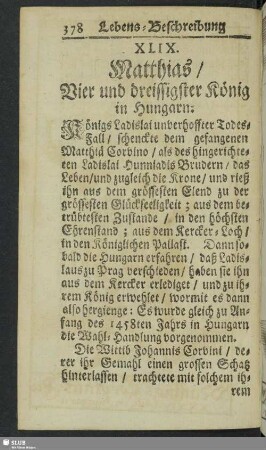 378 Lebens-Beschreibung
XLIX.
Matthias /
Vier und dreissigster König
in Hungarn.
Königs Ladislai unverhoffter Todes-
Fall / schenckte dem gefangenen
Matthiä Corvino / als des hingerichte-
ten Ladislai Hunniadis Brudern / das
Leben/und zugleich die Krone / und rieß
ihn aus dem grössesten Elend zu der
grössesten Glückseeligkeit ; aus dem be-
trübtesten Zustande / in den höchsten
Ehrenstand ; aus dem Kercker-Loch /
in den Königlichen Pallast. Dann so-
bald die Hungarn erfahren / daß Ladis-
laus zu Prag verschieden / haben sie ihn
aus dem Kercker erlediget / und zu ih-
rem König erwehlet / wormit es dann
also hergienge : Es wurde gleich zu An-
fang des 1458ten Jahrs in Hungarn
die Wahl-Handlung vorgenommen.
Die Wittib Johannis Corvini / de-
rer ihr Gemahl einen grossen Schatz
hinterlassen / trachtete mit solchem ih-
rem
SLUB